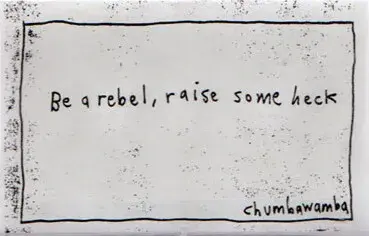 Be a rebel, raise some heck
chumbawamba